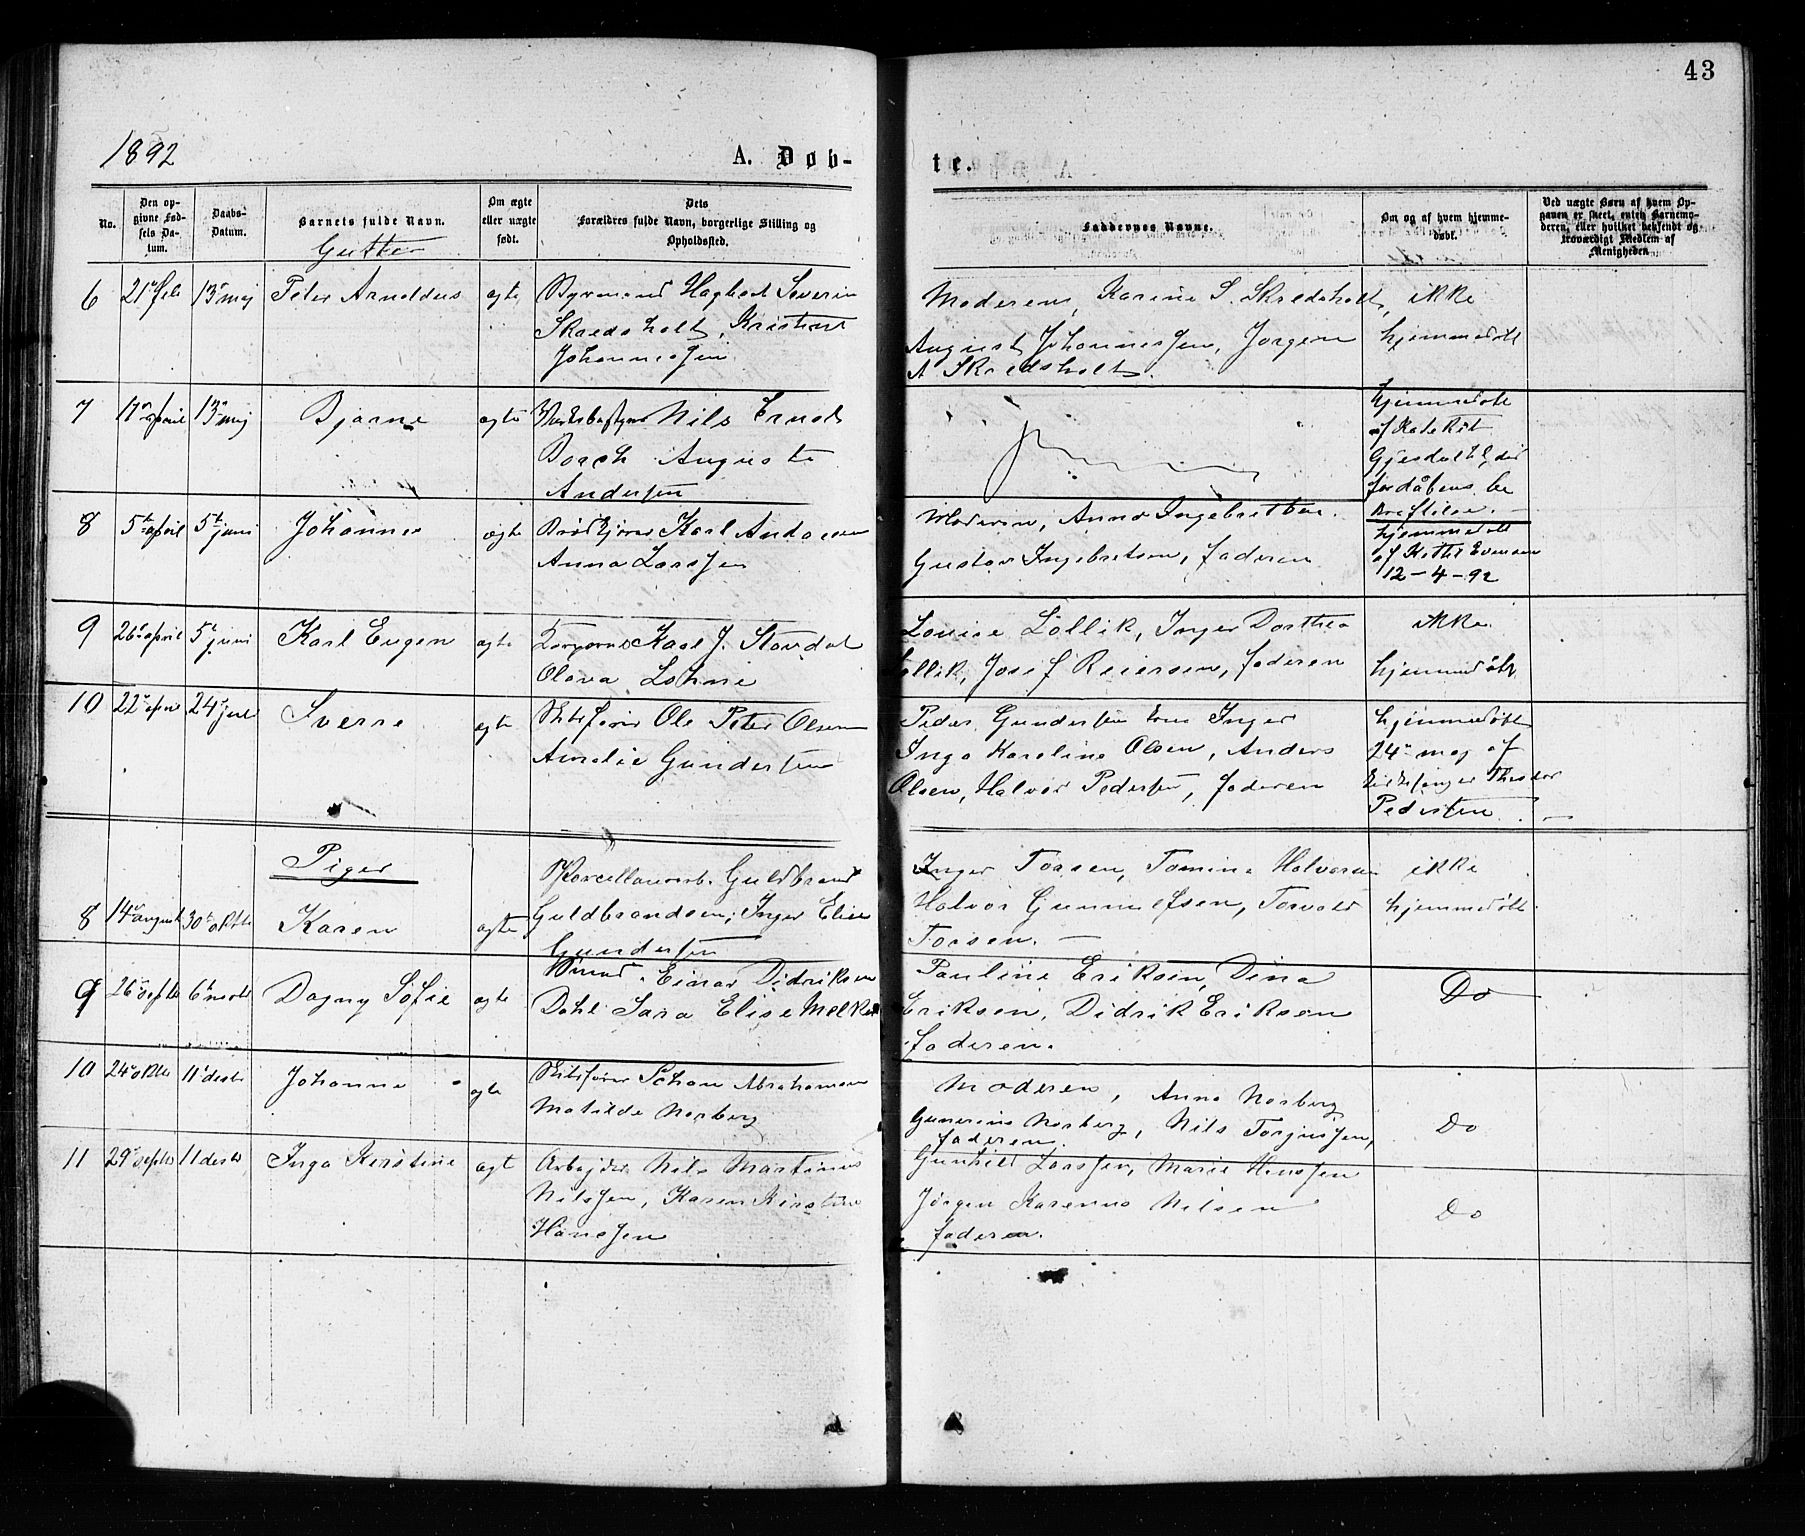 43
1892
A. Døb-
te.
No.
Den op-
givne Fød-
sels Da-
tum.
Daabs-
Datum.
Barnets fulde Navn.
Om ægte
eller uægte
født.
Dets
Forældres fulde Navn, borgerlige Stilling og
Opholdssted.
Faddernes Navne.
Om og af hvem hjemme-
døbt.
Ved uægte Børn af hvem Op-
gaven er skeet, enten Barnemo-
deren, eller hvilket bekjendt og
troværdigt Medlem af
Menigheden.
Gutter
6 21 Feb 13 maj Peter Arnoldus ægte Hagbart Severin
Skredsholt, Kristine
Johannessen
Moderen, Karine S. Skredsholt,
August Johannessen, Jørgen
A Skredsholt.
ikke
hjemmedøbt
7 17 april 13 maj Bjarne ægte Nils Ernst
Borch Auguste
Andersen
hjemmedøbt
af
Gjesdahl
for dåbens be
8 5te april 5te juni Johannes ægte Karl Andersen
Anna Larssen
Moderen, Anna Ingebretsen.
Gustav Ingebretsen, faderen
hjemmedøbt
af Kettil Evensen
12-4-92
9 26 april 5te juni Karl Eugen ægte Karl J. Stordal
Olava Lohne
Louise Lollik, Inger Dorthea
Lollik, Josef Reiersen, faderen
ikke
hjemmedøbt
10 22 april 24 juli Sverre ægte Skibsfører Ole Peter Olsen
Amalie Gundersen
Peder Gundersen Inger
Inga Karoline Olsen, Anders
Olsen, Halvor Pedersen, faderen
hjemmedøbt
24 maj af
Kirkesanger Theodor
Pedersen
Piger
8 14 august 30te oktb Karen ægte Porcellænsarb. Guldbrand
Guldbrandsen, Inger Elise
Gundersen
Inger Torsen, Tomine Halvorsen
Halvor Gunnulfsen, Torvald
Torsen.
ikke
hjemmedøbt
9 26 septb 6te novbr Dagny Sofie ægte Einar Didriksen
Dahl Sara Elise
Pauline Eriksen, Dina
Eriksen, Didrik Eriksen
faderen.
Do
10 24 oktb 11 desbr Johanne ægte Skibsfører Johan Abrahamsen
Matilde Norberg
Moderen, Anna Norberg
Gunerius Norberg, Nils Torjussen,
faderen.
Do
11 29 septb 11 desbr Inga Kirstine ægt Arbejder Nils Martinius
Nilssen, Karen Kirstine
Hanssen
Gunhild Larssen, Marie Hanssen
Jørgen Karenus Nilsen
faderen.
Do